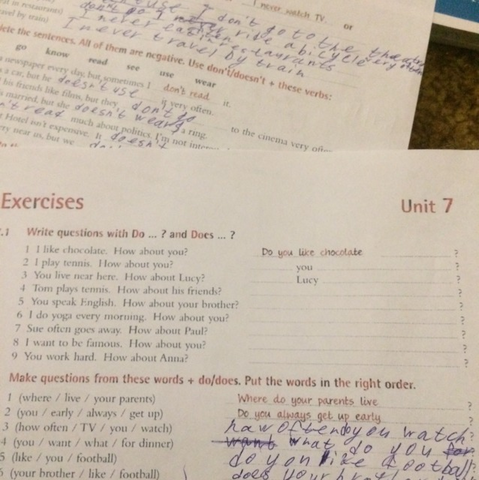 I never watch TV. or
in restaurants) don't go to the theater
travel by train) ride a bicycle very often
I never eat in restaurants
I never travel by train
lete the sentences. All of them are negative. Use don't/doesn't + these verbs:
go know read see use wear
newspaper every day, but sometimes I don't read it.
a car, but he doesn't use it very often.
his friends like films, but they don't go to the cinema very often
married, but she doesn't wear a ring.
n't read much about politics. I'm not inter
Hotel isn't expensive. It doesn't
ery near us, but we
Exercises Unit 7
.1 Write questions with Do ... ? and Does ... ?
1 I like chocolate. How about you? Do you like chocolate ?
2 I play tennis. How about you? you ?
3 You live near here. How about Lucy? Lucy ?
4 Tom plays tennis. How about his friends? ?
5 You speak English. How about your brother? ?
6 I do yoga every morning. How about you? ?
7 Sue often goes away. How about Paul? ?
8 I want to be famous. How about you? ?
9 You work hard. How about Anna? ?
Make questions from these words + do/does. Put the words in the right order.
1 (where / live / your parents) Where do your parents live ?
2 (you / early / always / get up) Do you always get up early ?
3 (how often / TV / you / watch) how often do you watch ?
4 (you / want / what / for dinner) want what do you for
5 (like / you / football) do you like football ?
6 (your brother / like / football) does your